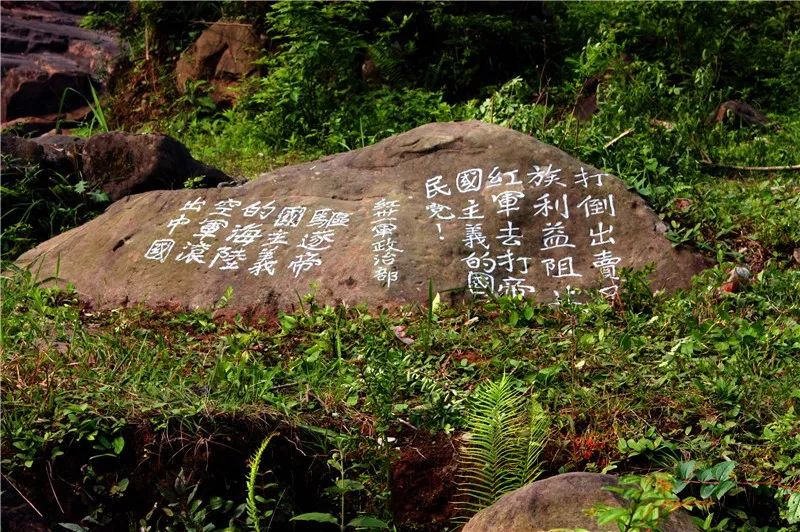 打倒出賣民
族利益阻止
紅軍去打帝
國主義的國
民党！
紅卅軍政治部
驅逐帝
國主義
的海陸
空軍滾
出中國